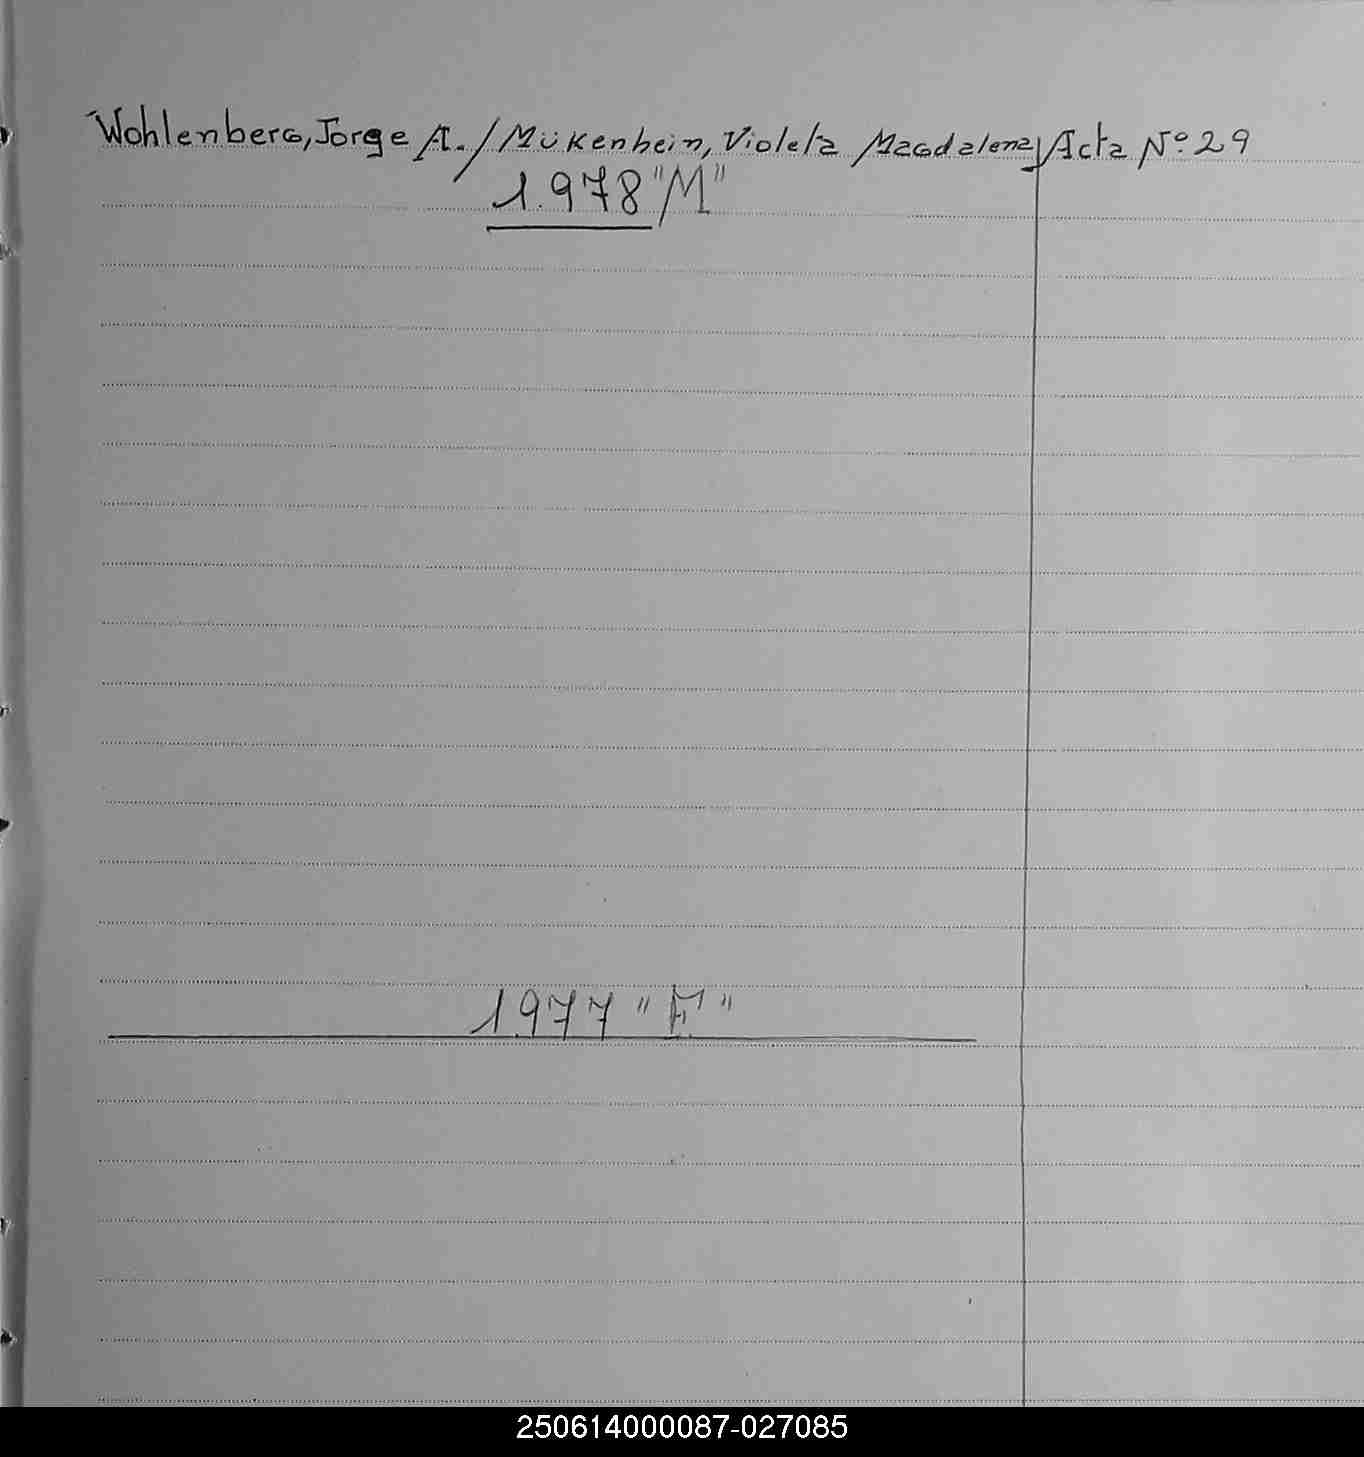 Wohlenberg, Jorge A. / Mükenhein, Violeta Magdalena / Acta Nº 29
1.978 "M"
1977 "F"
250614000087-027085